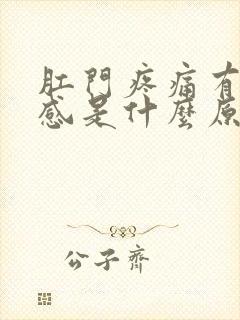 肛門疼痛有
感是什麼原
公子齊